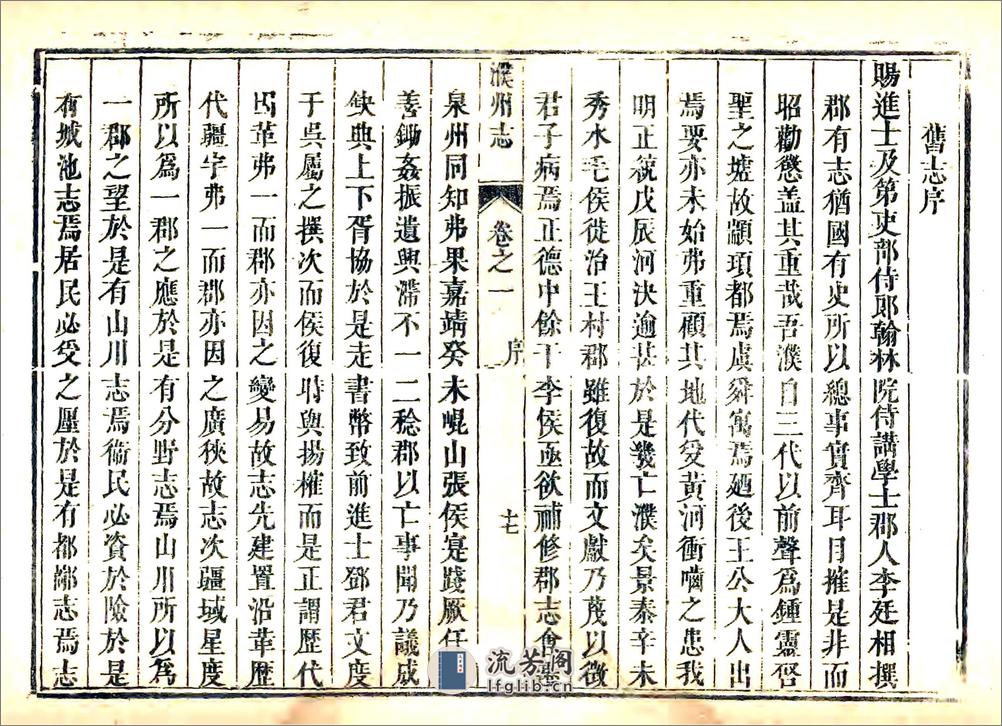 舊志序
賜進士及第吏部侍郎翰林院侍講學士郡人李廷相撰
郡有志猶國有史所以總事實齊耳目摧是非而
昭勸懲盖其重哉吾濮自三代以前聲爲鍾靈啓
聖之墟故顓頊都焉虞舜寓焉廼後王公大人出
焉要亦未始弗重顧其地代受黃河衝嚙之患我
明正統戊辰河決逾甚於是㡬亡濮矣景泰辛未
秀水毛侯徙治王村郡雖復故而文獻乃蔑以徵
君子病焉正德中餘干李侯亟欲補修郡志會
濮州志 卷之一 序 十七
泉州同知弗果嘉靖癸未崐山張侯寔踐厥任
善鋤姦振遺興滯不一二稔郡以亡事聞乃議成
缺典上下胥協於是走書幣致前進士鄧君文度
于吳屬之撰次而侯復時與揚榷而是正謂歷代
因革弗一而郡亦因之變易故志先建置沿革歷
代疆宇弗一而郡亦因之廣狹故志次疆域星度
所以爲一郡之應於是有分野志焉山川所以爲
一郡之望於是有山川志焉衞民必資於險於是
有城池志焉居民必受之廛於是有都鄙志焉志
流芳阁
lfglib.cn